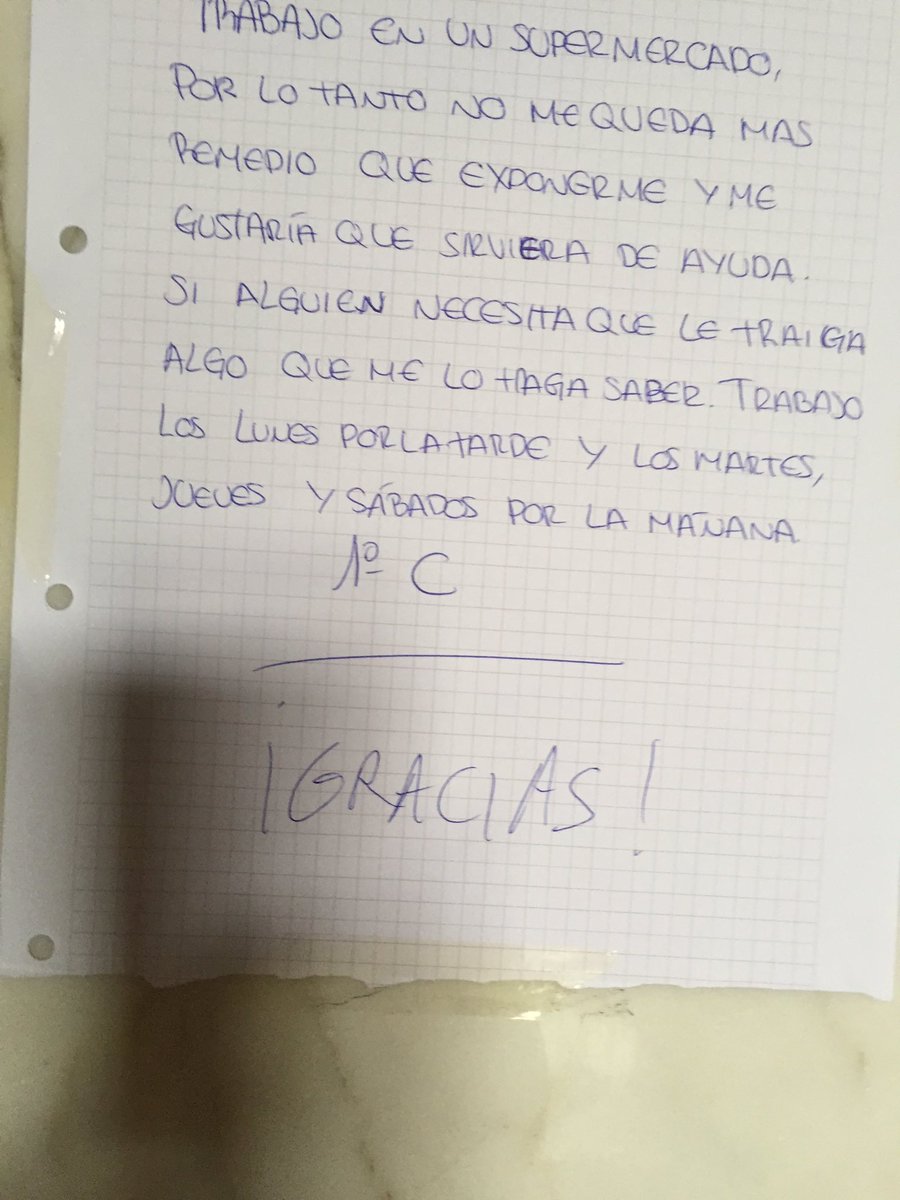 TRABAJO EN UN SUPERMERCADO,
POR LO TANTO NO ME QUEDA MAS
REMEDIO QUE EXPONERME Y ME
GUSTARÍA QUE SIRVIERA DE AYUDA.
SI ALGUIEN NECESITA QUE LE TRAIGA
ALGO QUE ME LO HAGA SABER. TRABAJO
LOS LUNES POR LA TARDE Y LOS MARTES,
JUEVES Y SÁBADOS POR LA MAÑANA
1º C
¡GRACIAS!